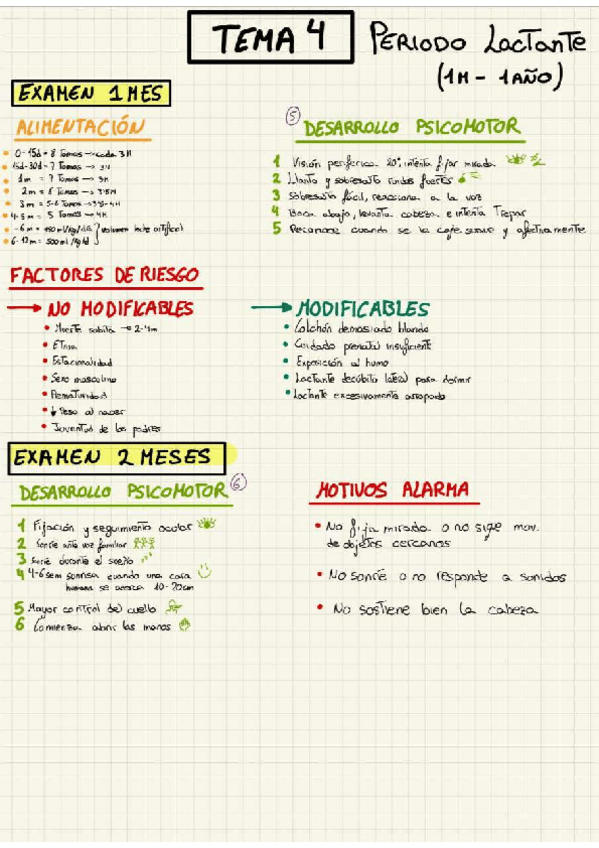 TEMA 4 PERIODO LACTANTE
(1M - 1AÑO)
EXAMEN 1 MES
ALIMENTACIÓN
0-15d = 8 Tomas → cada 3H
15d-30d = 7 Tomas → 3H
1m = 7 Tomas → 3H
2m = 6 Tomas → 3'5H
3m = 5-6 Tomas → 3'5-4H
4-5m = 5 Tomas → 4H
-6m = 150ml/kg/día } Volumen leche artificial
6-12m = 500ml/kg/d
5 DESARROLLO PSICOMOTOR
1 Visión periférica 20°, intenta fijar mirada
2 Llanto y sobresalto ruidos fuertes
3 Sobresalto fácil, reacciona a la voz
4 Boca abajo, levanta cabeza e intenta Trepar
5 Reconoce cuando se la coge suave y afectivamente
FACTORES DE RIESGO
→ NO MODIFICABLES
Muerte súbita → 2-4m
Etnia
Estacionalidad
Sexo masculino
Prematuridad
↓ Peso al nacer
Juventud de los padres
→ MODIFICABLES
Colchón demasiado blando
Cuidado prenatal insuficiente
Exposición al humo
Lactante decúbito lateral para dormir
Lactante excesivamente arropado
EXAMEN 2 MESES
DESARROLLO PSICOMOTOR 6
1 Fijación y seguimiento ocular
2 Sonríe ante voz familiar
3 Sonríe durante el sueño
4 4-6 sem sonrisa cuando una cara
humana se acerca 10-20cm
5 Mayor control del cuello
6 Comienza abrir las manos
MOTIVOS ALARMA
No fija mirada o no sigue mov.
de objetos cercanos
No sonríe o no responde a sonidos
No sostiene bien la cabeza